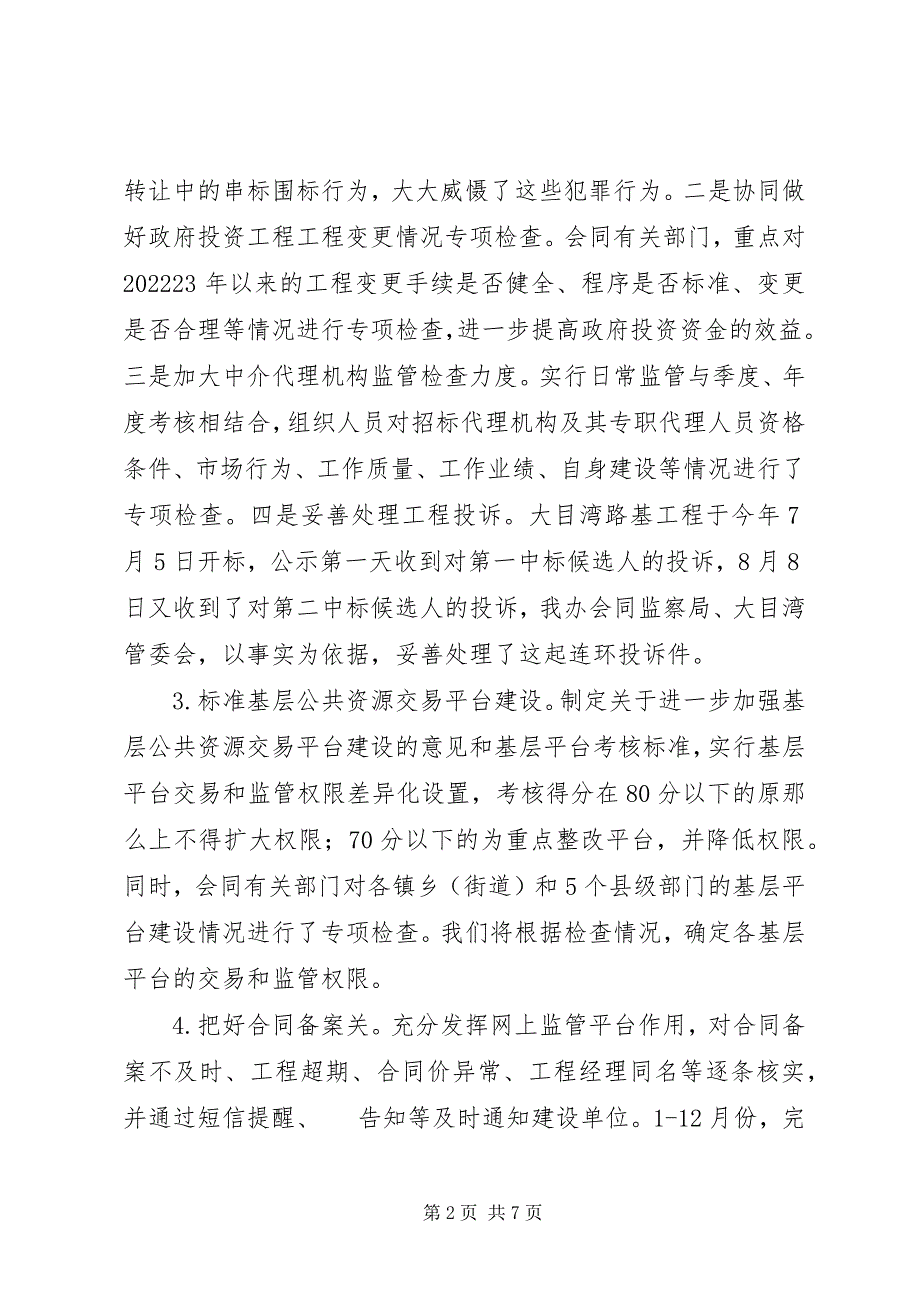 转让中的串标围标行为，大大威慑了这些犯罪行为。二是协同做
好政府投资工程工程变更情况专项检查。会同有关部门，重点对
202223 年以来的工程变更手续是否健全、程序是否标准、变更
是否合理等情况进行专项检查，进一步提高政府投资资金的效益。
三是加大中介代理机构监管检查力度。实行日常监管与季度、年
度考核相结合，组织人员对招标代理机构及其专职代理人员资格
条件、市场行为、工作质量、工作业绩、自身建设等情况进行了
专项检查。四是妥善处理工程投诉。大目湾路基工程于今年 7
月 5 日开标，公示第一天收到对第一中标候选人的投诉，8 月 8
日又收到了对第二中标候选人的投诉，我办会同监察局、大目湾
管委会，以事实为依据，妥善处理了这起连环投诉件。
3.标准基层公共资源交易平台建设。制定关于进一步加强基
层公共资源交易平台建设的意见和基层平台考核标准，实行基层
平台交易和监管权限差异化设置，考核得分在 80 分以下的原那
么上不得扩大权限；70 分以下的为重点整改平台，并降低权限。
同时，会同有关部门对各镇乡（街道）和 5 个县级部门的基层平
台建设情况进行了专项检查。我们将根据检查情况，确定各基层
平台的交易和监管权限。
4.把好合同备案关。充分发挥网上监管平台作用，对合同备
案不及时、工程超期、合同价异常、工程经理同名等逐条核实，
并通过短信提醒、 告知等及时通知建设单位。1-12 月份，完
第 2 页 共 7 页